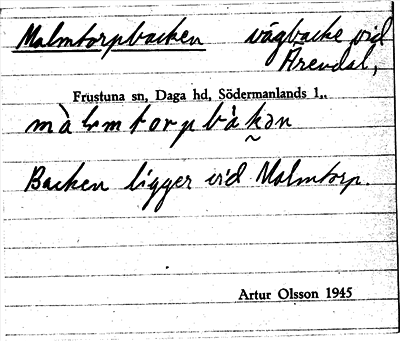 Malmtorpbacken vägbacke vid
Årendal,
Frustuna sn, Daga hd, Södermanlands l.,
Backen ligger vid Malmtorp.
Artur Olsson 1945